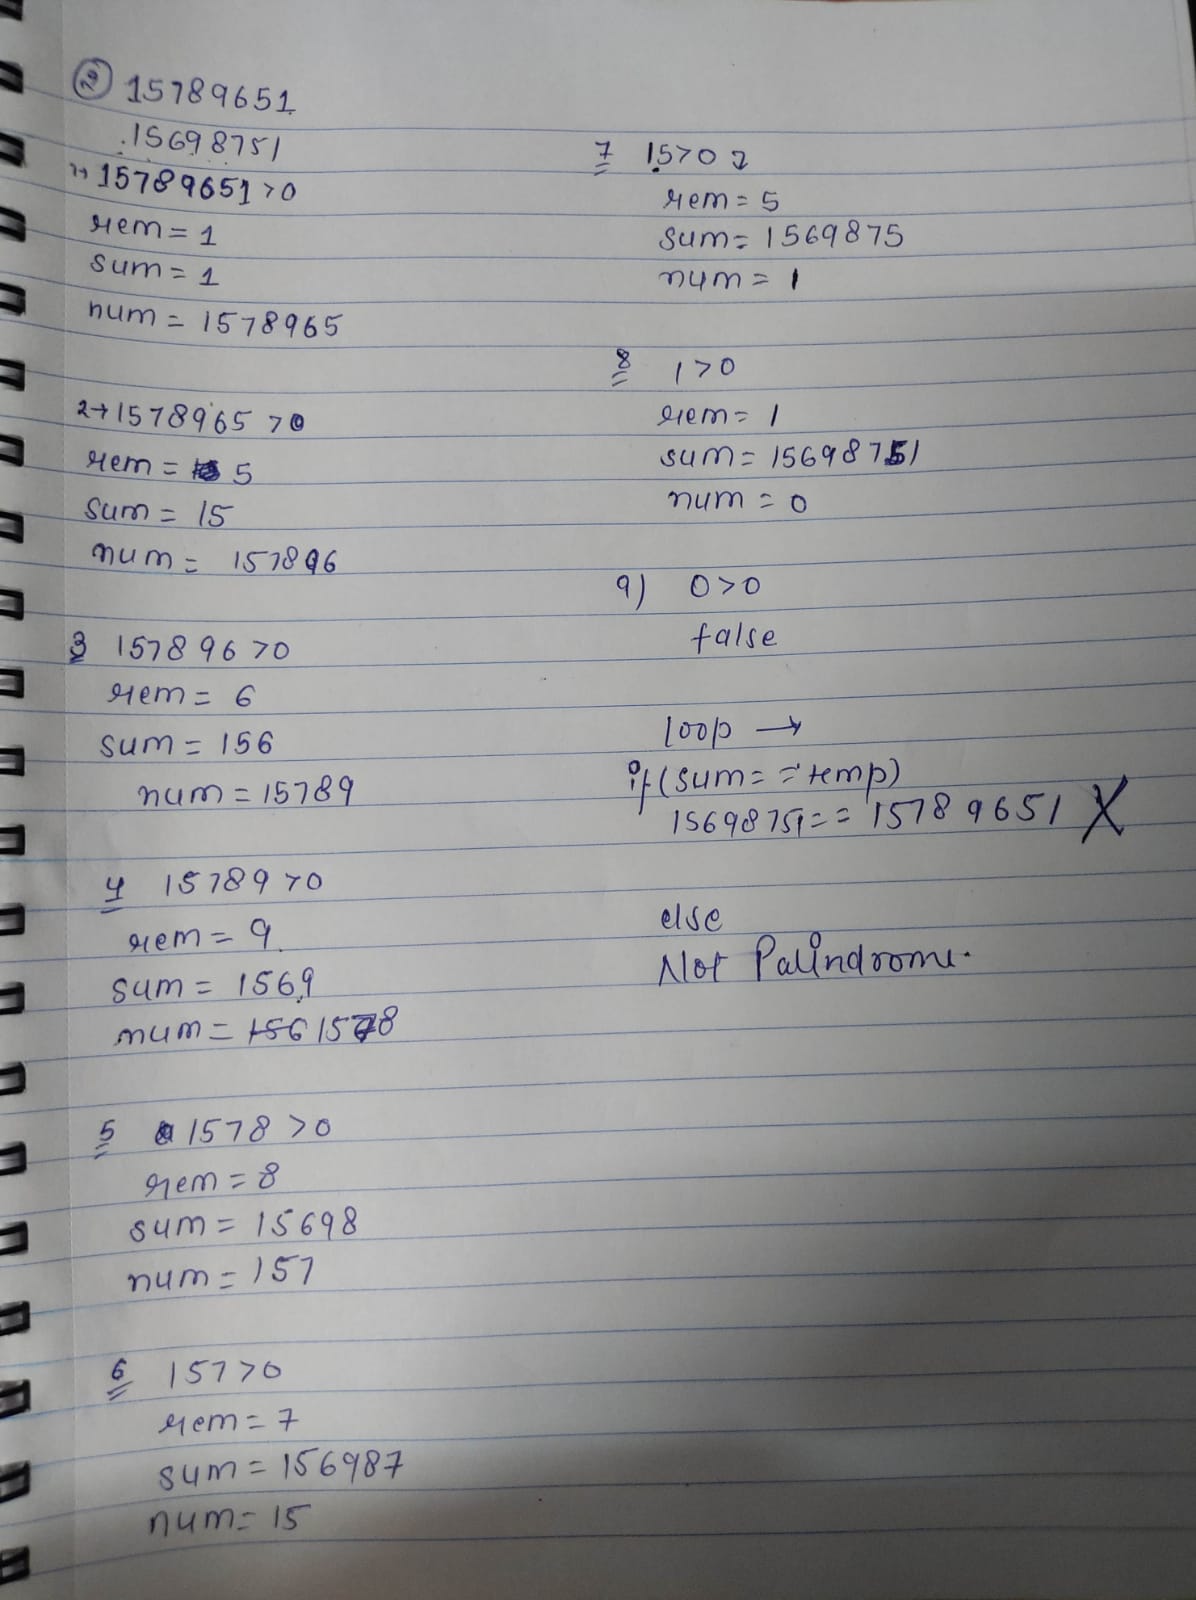 2 15789651
15698751
1→ 15789651>0
rem = 1
sum = 1
num = 1578965
2→ 1578965 >0
rem = 5
sum = 15
num = 157896
3 157896 >0
rem = 6
sum = 156
num = 15789
4 15789 >0
rem = 9
sum = 1569
num = 1578
5 1578 >0
rem = 8
sum = 15698
num = 157
6 157>0
rem = 7
sum = 156987
num = 15
7 15>0
rem = 5
sum = 1569875
num = 1
8 1>0
rem = 1
sum = 15698751
num = 0
9) 0>0
false
loop →
if (sum == temp)
15698751 == 15789651 X
else
Not Palindrome.